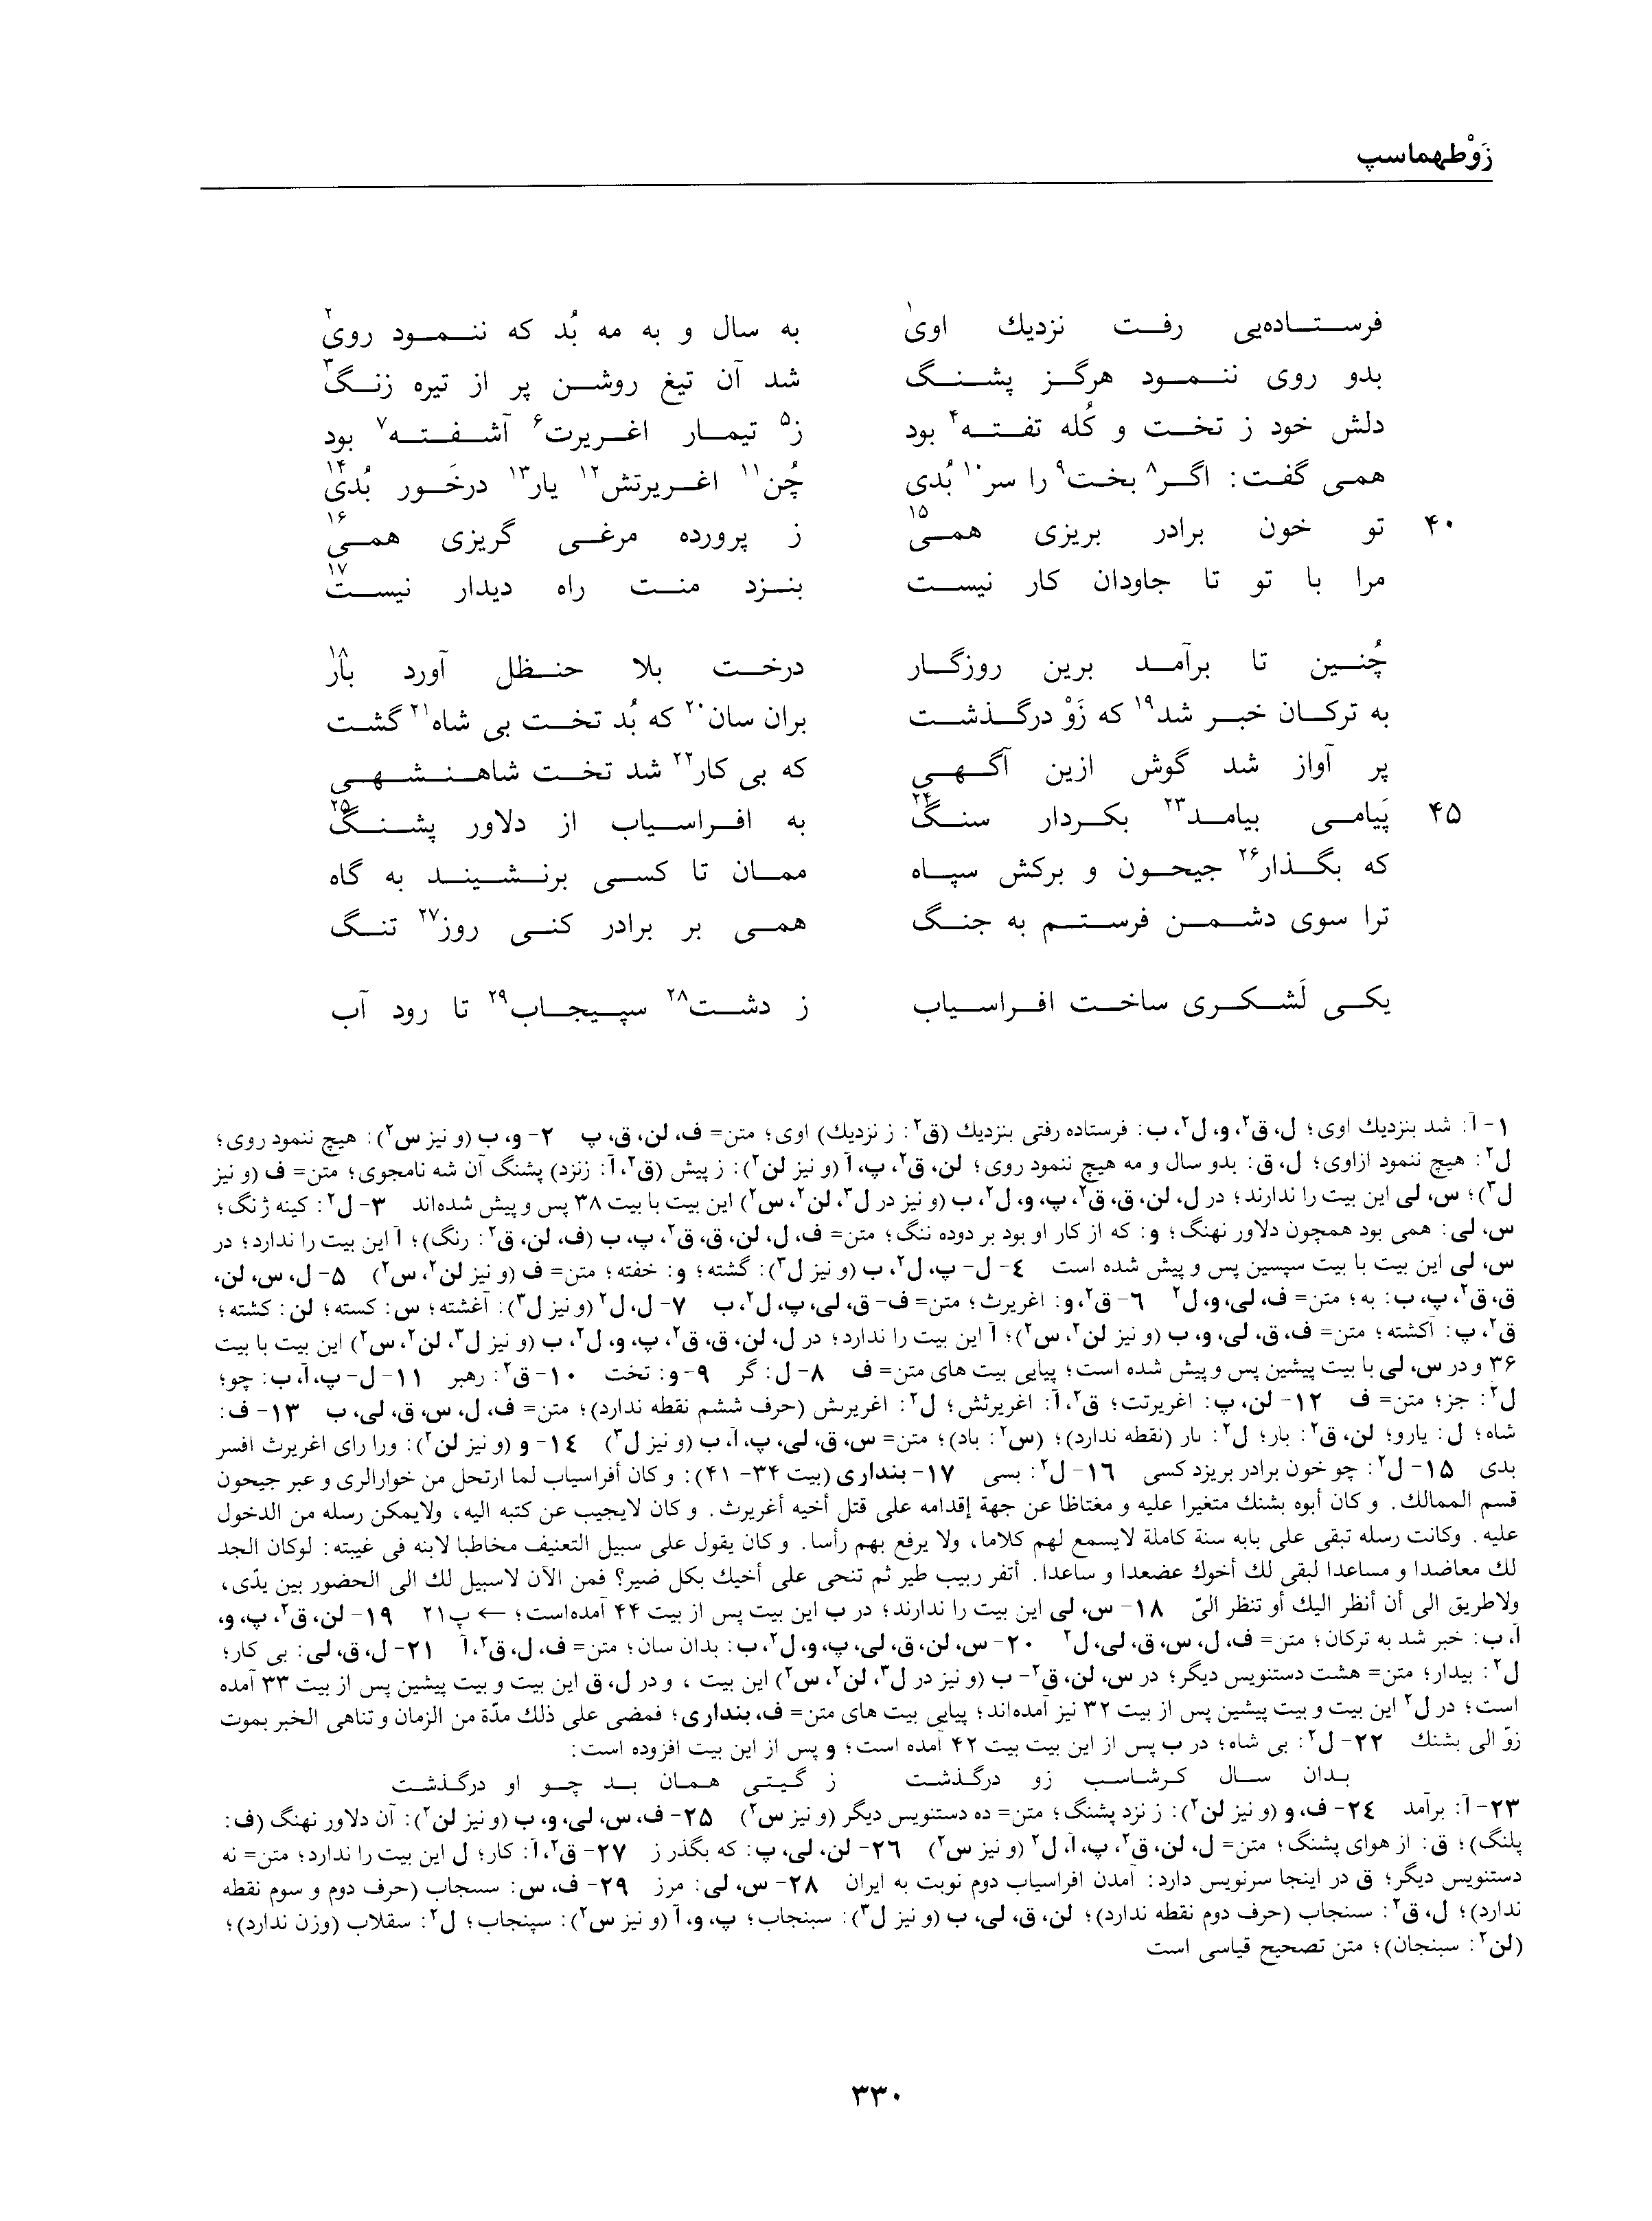 زَوْطهماسپ
فرستاده‌یی رفت نزدیك اوی۱ به سال و به مه بُد که ننمود روی۲
بدو روی ننمود هرگز پشنگ شد آن تیغ روشن پر از تیره زنگ۳
دلش خود ز تخت و کُله تفته۴ بود ز۵ تیمار اغریرت۶ آشفته۷ بود
همی گفت: اگر۸ بخت۹ را سر۱۰ بُدی چُن۱۱ اغریرتش۱۲ یار۱۳ درخَور بُدی۱۴
۴۰ تو خون برادر بریزی همی۱۵ ز پرورده مرغی گریزی همی۱۶
مرا با تو تا جاودان کار نیست بنزد منت راه دیدار نیست۱۷
چُنین تا برآمد برین روزگار درخت بلا حنظل آورد بار۱۸
به ترکان خبر شد۱۹ که زَوْ درگذشت بران سان۲۰ که بُد تخت بی شاه۲۱ گشت
پر آواز شد گوش ازین آگهی که بی کار۲۲ شد تخت شاهنشهی
۴۵ پَیامی بیامد۲۳ بکردار سنگ۲۴ به افراسیاب از دلاور پشنگ۲۵
که بگذار۲۶ جیحون و برکش سپاه ممان تا کسی برنشیند به گاه
ترا سوی دشمن فرستم به جنگ همی بر برادر کنی روز۲۷ تنگ
یکی لَشکری ساخت افراسیاب ز دشت۲۸ سپیجاب۲۹ تا رود آب
۱- آ: شد بنزدیك اوی؛ ل، ق۲، و، ل۲، ب: فرستاده رفتی بنزدیك (ق۲: ز نزدیك) اوی؛ متن= ف، لن، ق، پ ۲- و، ب (و نیز س۲): هیچ ننمود روی؛
ل۲: هیچ ننمود ازاوی؛ ل، ق: بدو سال و مه هیچ ننمود روی؛ لن، ق۲، پ، آ (و نیز لن۲): ز پیش (ق۲، آ: زنزد) پشنگ آن شه نامجوی؛ متن= ف (و نیز
ل۳)؛ س، لی این بیت را ندارند؛ در ل، لن، ق، ق۲، پ، و، ل۲، ب (و نیز در ل۳، لن۲، س۲) این بیت با بیت ۳۸ پس و پیش شده‌اند ۳- ل۲: کینه ژنگ؛
س، لی: همی بود همچون دلاور نهنگ؛ و: که از کار او بود بر دوده ننگ؛ متن= ف، ل، لن، ق، ق۲، پ، ب (ف، لن، ق۲: رنگ)؛ آ این بیت را ندارد؛ در
س، لی این بیت با بیت سپسین پس و پیش شده است ۴- ل- پ، ل۲، ب (و نیز ل۳): گشته؛ و: خفته؛ متن= ف (و نیز لن۲، س۲) ۵- ل، س، لن،
ق، ق۲، پ، ب: به؛ متن= ف، لی، و، ل۲ ۶- ق۲، و: اغریرث؛ متن= ف- ق، لی، پ، ل۲، ب ۷- ل، ل۲ (و نیز ل۳): آغشته؛ س: کسته؛ لن: کشته؛
ق۲، پ: آکشته؛ متن= ف، ق، لی، و، ب (و نیز لن۲، س۲)؛ آ این بیت را ندارد؛ در ل، لن، ق، ق۲، پ، و، ل۲، ب (و نیز ل۳، لن۲، س۲) این بیت با بیت
۳۶ و در س، لی با بیت پیشین پس و پیش شده است؛ پیایی بیت های متن= ف ۸- ل: گر ۹- و: تخت ۱۰- ق۲: رهبر ۱۱- ل- پ، آ، ب: چو؛
ل۲: جز؛ متن= ف ۱۲- لن، پ: اغریرتت؛ ق۲، آ: اغریرثش؛ ل۲: اغریرىش (حرف ششم نقطه ندارد)؛ متن= ف، ل، س، ق، لی، ب ۱۳- ف:
شاه؛ ل: یارو؛ لن، ق۲: بار؛ ل۲: ىار (نقطه ندارد)؛ (س۲: باد)؛ متن= س، ق، لی، پ، آ، ب (و نیز ل۳) ۱۴- و (و نیز لن۲): ورا رای اغریرث افسر
بدی ۱۵- ل۲: چو خون برادر بریزد کسی ۱۶- ل۲: بسی ۱۷- بنداری (بیت ۳۴- ۴۱): و کان أفراسیاب لما ارتحل من خوارالری و عبر جیحون
قسم الممالك. و کان أبوه بشنك متغیرا علیه و مغتاظا عن جهة إقدامه علی قتل أخیه أغریرث. و کان لایجیب عن کتبه الیه، ولایمکن رسله من الدخول
علیه. وکانت رسله تبقی علی بابه سنة کاملة لایسمع لهم کلاما، ولا یرفع بهم رأسا. و کان یقول علی سبیل التعنیف مخاطبا لابنه فی غیبته: لوکان الجد
لك معاضدا و مساعدا لبقی لك أخوك عضعدا و ساعدا. أتفر ربیب طیر ثم تنحی علی أخیك بکل ضیر؟ فمن الآن لاسبیل لك الی الحضور بین یدّی،
ولاطریق الی أن أنظر الیك أو تنظر الیّ ۱۸- س، لی این بیت را ندارند؛ در ب این بیت پس از بیت ۴۴ آمده‌است؛ ← پ۲۱ ۱۹- لن، ق۲، پ، و،
آ، ب: خبر شد به ترکان؛ متن= ف، ل، س، ق، لی، ل۲ ۲۰- س، لن، ق، لی، پ، و، ل۲، ب: بدان سان؛ متن= ف، ل، ق۲، آ ۲۱- ل، ق، لی: بی کار؛
ل۲: بیدار؛ متن= هشت دستنویس دیگر؛ در س، لن، ق۲- ب (و نیز در ل۳، لن۲، س۲) این بیت ، و در ل، ق این بیت و بیت پیشین پس از بیت ۳۳ آمده
است؛ در ل۲ این بیت و بیت پیشین پس از بیت ۳۲ نیز آمده‌اند؛ پیایی بیت های متن= ف، بنداری؛ فمضی علی ذلك مدّة من الزمان و تناهی الخبر بموت
زوّ الی بشنك ۲۲- ل۲: بی شاه؛ در ب پس از این بیت بیت ۴۲ آمده است؛ و پس از این بیت افزوده است:
بدان سال کرشاسب زو درگذشت ز گیتی همان بد چو او درگذشت
۲۳- آ: برآمد ۲۴- ف، و (و نیز لن۲): ز نزد پشنگ؛ متن= ده دستنویس دیگر (و نیز س۲) ۲۵- ف، س، لی، و، ب (و نیز لن۲): آن دلاور نهنگ (ف:
پلنگ)؛ ق: از هوای پشنگ؛ متن= ل، لن، ق۲، پ، آ، ل۲ (و نیز س۲) ۲۶- لن، لی، پ: که بگذر ز ۲۷- ق۲، آ: کار؛ ل این بیت را ندارد؛ متن= نه
دستنویس دیگر؛ ق در اینجا سرنویس دارد: آمدن افراسیاب دوم نوبت به ایران ۲۸- س، لی: مرز ۲۹- ف، س: سىىجاب (حرف دوم و سوم نقطه
ندارد)؛ ل، ق۲: سىنجاب (حرف دوم نقطه ندارد)؛ لن، ق، لی، ب (و نیز ل۳): سبنجاب؛ پ، و، آ (و نیز س۲): سپنجاب؛ ل۲: سقلاب (وزن ندارد)؛
(لن۲: سبنجان)؛ متن تصحیح قیاسی است
۳۳۰